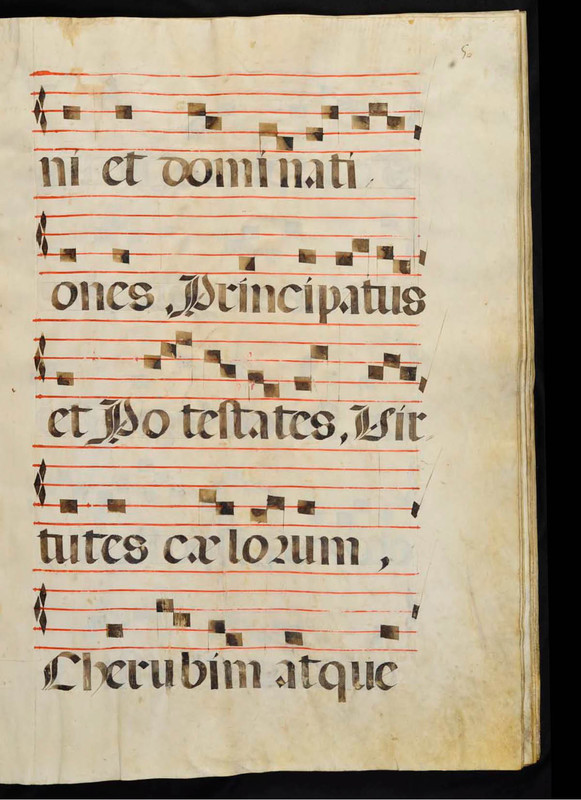 ni et domi nati
ones, Principatus
et Po testates, Vir
tutes cælorum,
Cherubim atque